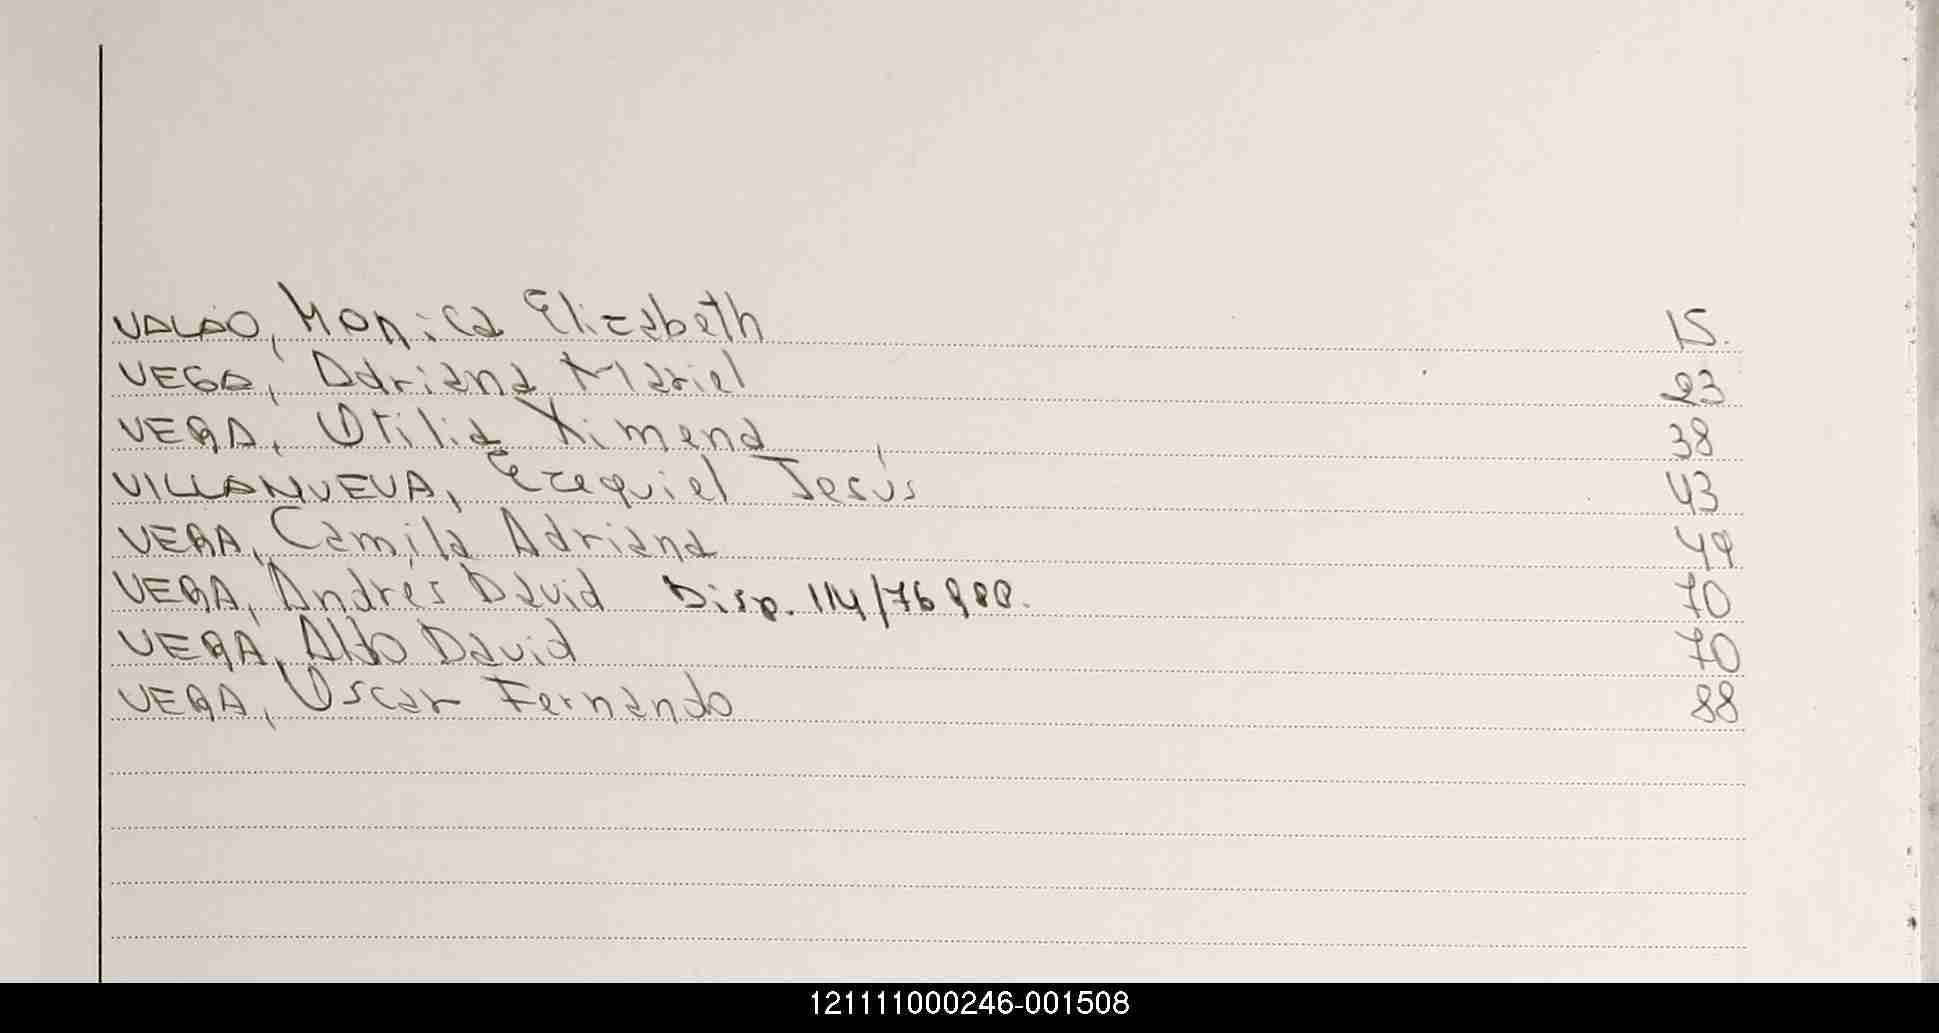 VALDO, Monica Elizabeth 15.
VEGA, Adriana Mariel 23
VERA, Otilia Ximena 38
VILLANUEVA, Ezequiel Jesús 43
VERA, Camila Adriana 49
VERA, Andrés David Disp. 114/76 70
VERA, Aldo David 70
VERA, Oscar Fernando 88
121111000246-001508